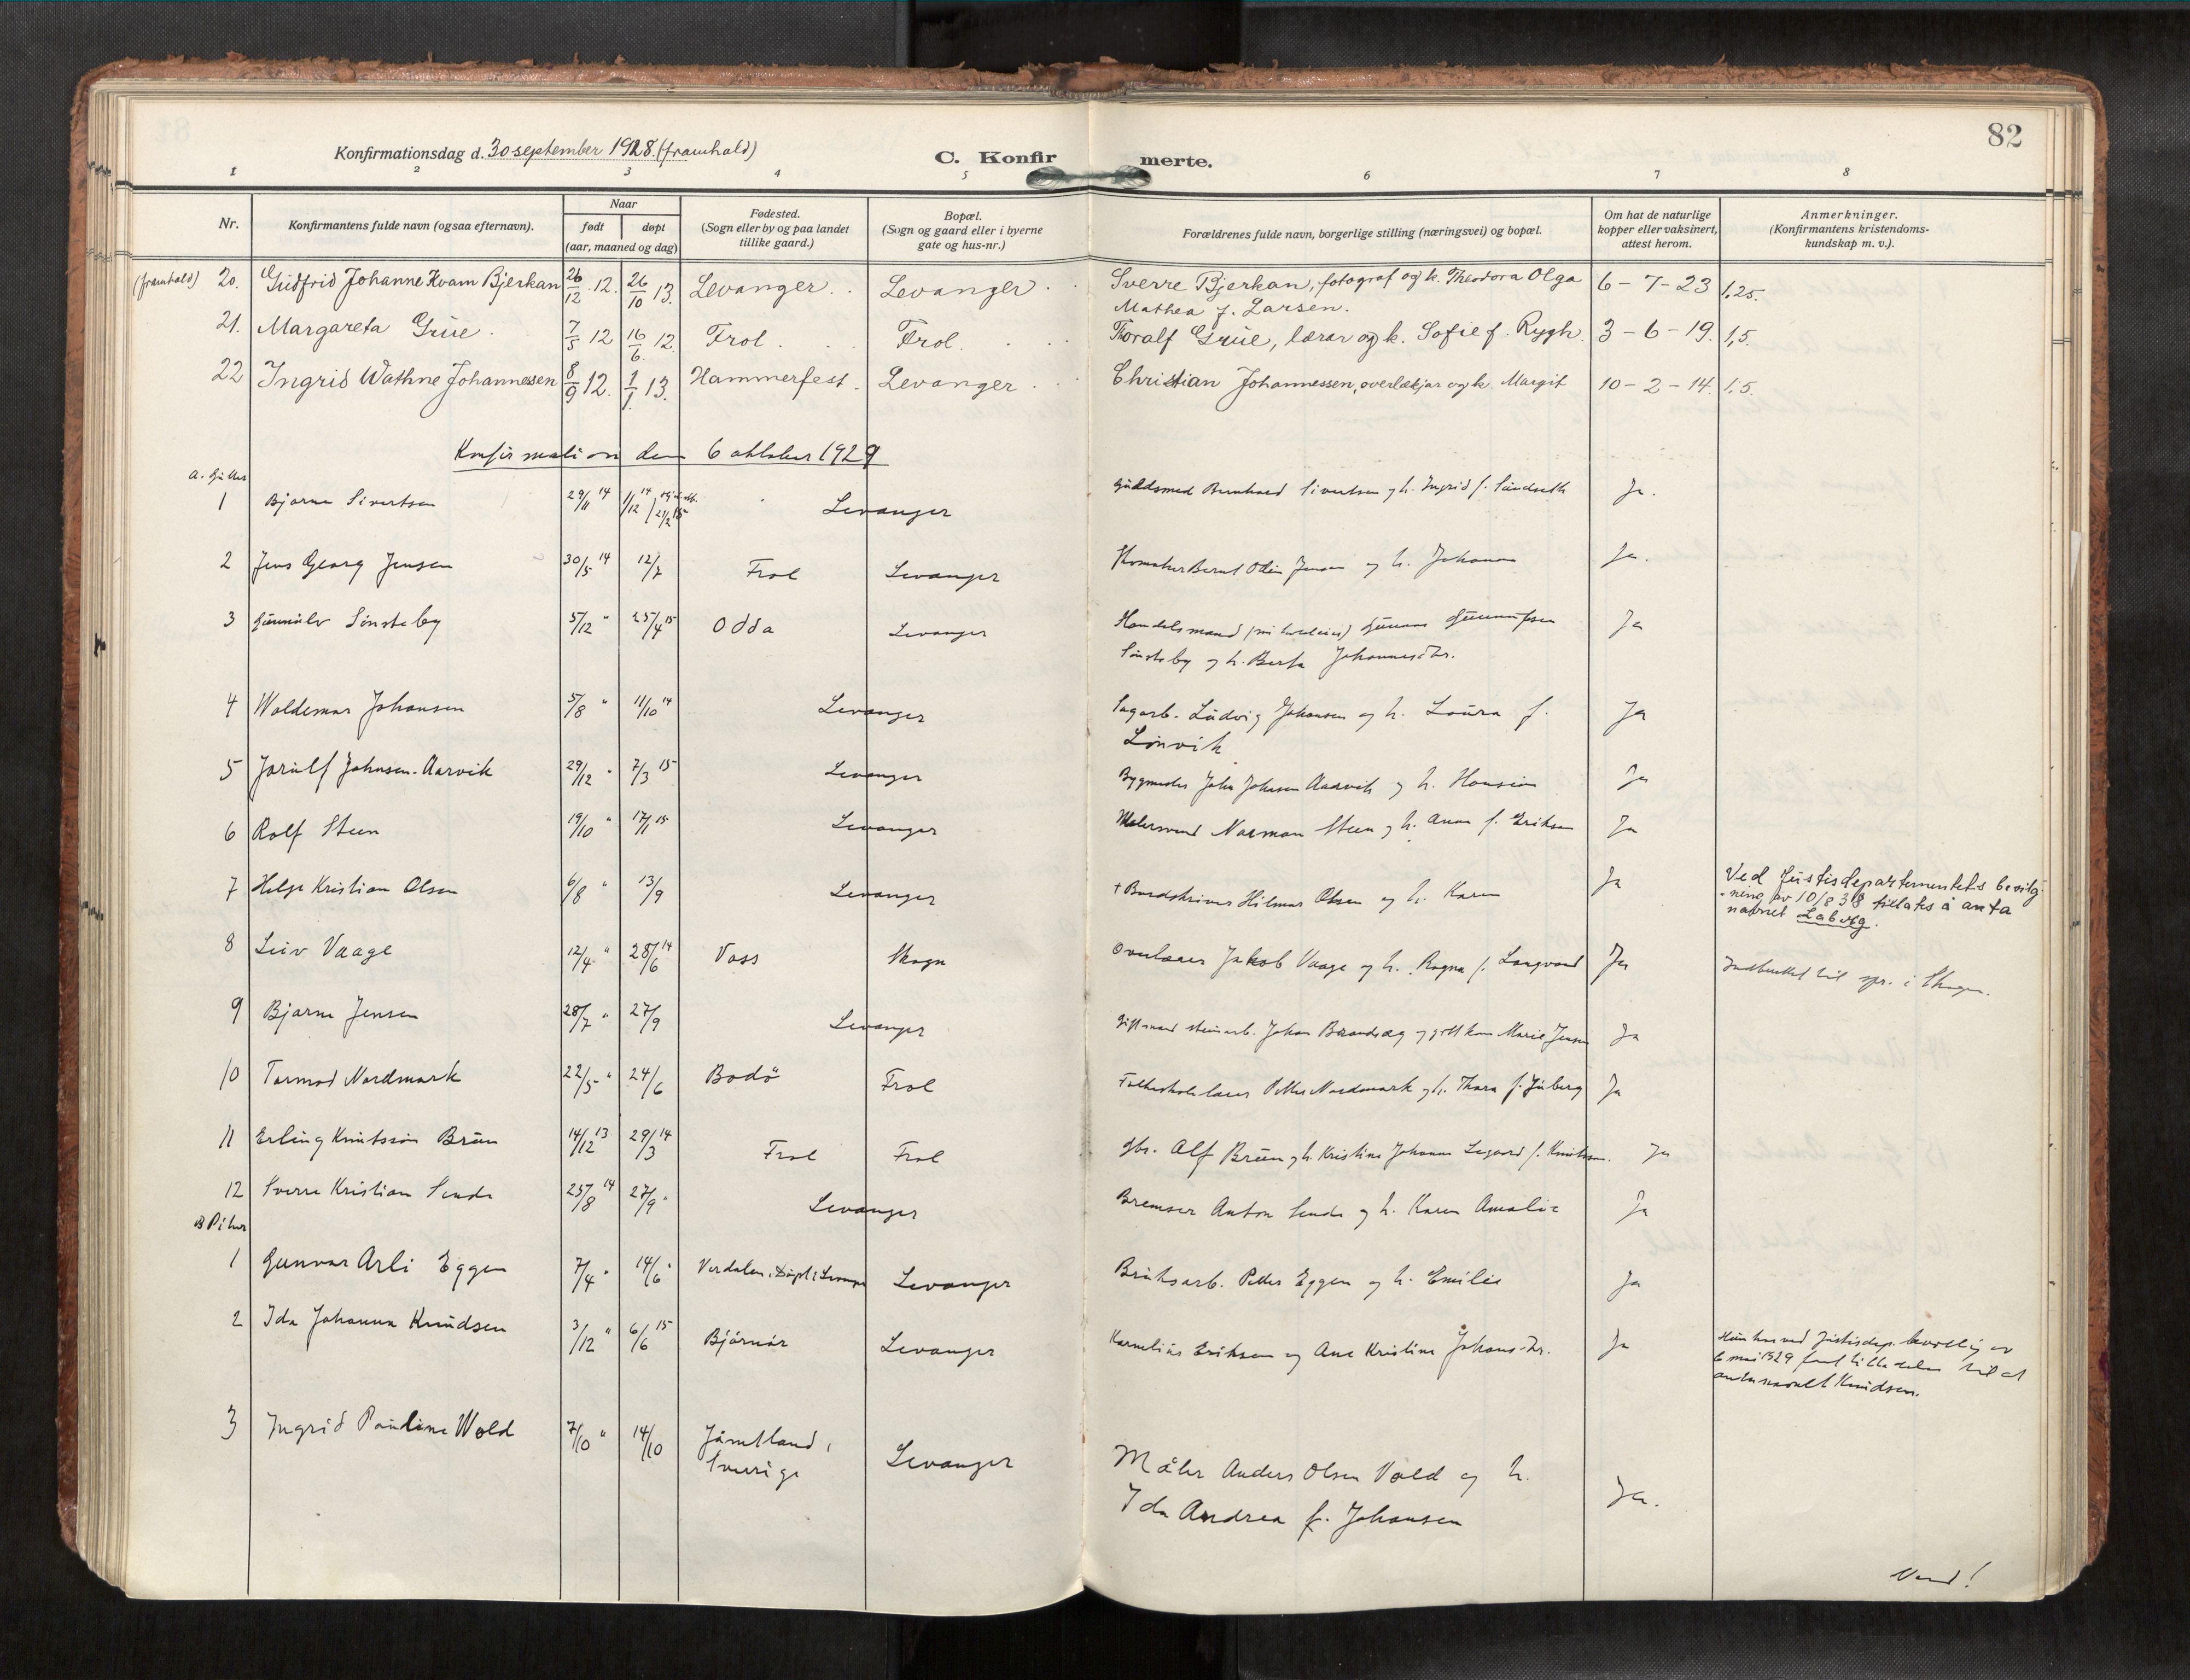 82
Konfirmationsdag d. 30 september 1928. (framhald)
C. Konfirmerte.
1 2 3 4 5 6 7 8
Nr.
Konfirmantens fulde navn (ogsaa efternavn).
Naar
født døpt
(aar, maaned og dag)
Fødested.
(Sogn eller by og paa landet
tillike gaard.)
Bopæl.
(Sogn og gaard eller i byerne
gate og hus-nr.)
Forældrenes fulde navn, borgerlige stilling (næringsvei) og bopæl.
Om hat de naturlige
kopper eller vaksinert,
attest herom.
Anmerkninger.
(Konfirmantens kristendoms-
kundskap m. v.).
(framhald) 20. Gudfrid Johanne Kvam Bjerkan 26/12 12. 26/10 13. Levanger. Levanger. Sverre Bjerkan, fotograf og k. Theodora Olga 6-7-23 1,25.
Mathea f. Larsen.
21. Margareta Grüe. 7/5 12 16/6 12. Frol. Frol. Toralf Grüe, lærar og k. Sofie f. Rygh. 3-6-19. 1,5.
22 Ingrid Wathne Johannessen 8/9 12. 1/1 13. Hammerfest. Levanger. Christian Johannessen, overlækjar og k. Margit 10-2-14. 1,5.
Konfirmation den 6 oktober 1929
a. Gutter
1 Bjarne Sivertsen 29/11 14 11/12 14 21/2 15 Levanger Guldsmed Bernhard Sivertsen og h. Ingrid f. Sundseth Ja.
2 Jens Georg Jensen 30/5 14 12/7 Frol Levanger Skomaker Bernt Odin Jensen og h. Johanna Ja.
3 Gunnulv Sønsteby 5/12 " 25/4 15 Odda Levanger Handelsmand Gunnar
Sønsteby og h. Berta Johannesdtr. Ja
4 Waldemar Johansen 5/8 " 11/10 14 Levanger Sagarb. Ludvig Johansen og h. Laura f. Ja
Lønvik
5 Jørulf Johnsen-Aarvik 29/12 " 7/3 15 Levanger Bygmester John Johnsen Aarvik og h. Ja
6 Rolf Steen 19/10 " 17/1 15 Levanger Malersvend Norman Steen og h. Anna f. Eriksen Ja
7 Helge Kristian Olsen 6/8 " 13/9 Levanger + Hilmar Olsen og h. Karen Ja Ved Justisdepartementets bevilg-
ning av 10/8 38 tillates å anta
navnet Laberg.
8 Leiv Vaage 12/4 " 28/6 14 Voss Skogn Overlærer Jakob Vaage og h. Ragna f. Langvand Ja
9 Bjarne Jensen 28/7 " 27/9 Levanger Gift mand steinarb. Johan Brandsæg og gift kone Marie Jensen Ja
10 Tormod Nordmark 22/5 " 24/6 Bodö Frol Folkeskolelærer Petter Nordmark og h. Thora f. Juberg Ja
11 Erling Knutsson Brüun 14/12 13 29/3 14 Frol Frol gbr. Alf Brüun og h. Kristine Johanne Segaard f. Knutsen. Ja
12 Sverre Kristian Sende 25/8 14 27/9 " Levanger Bremser Anton Sende og h. Karen Amalie Ja
B Piker
1 Gunvor Arli Eggen 7/4 " 14/6 " Verdalen. Døpt i Levanger Levanger Bruksarb. Petter Eggen og h. Emilie Ja
2 Ida Johanna Knudsen 3/12 " 6/6 15 Bjørnør Levanger Kornelius Eriksen og Ane Kristine Johans-dr. Ja Hun har ved Justisdep. bevillg av
6 mai 1929 faat tilladelse til at
anta navnet Knudsen.
3 Ingrid Pauline Wold 7/10 " 14/10 Jämtland,
Sverige Levanger Måler Anders Olsen Vold og h.
Ida Andrea f. Johansen Ja.
Vend!